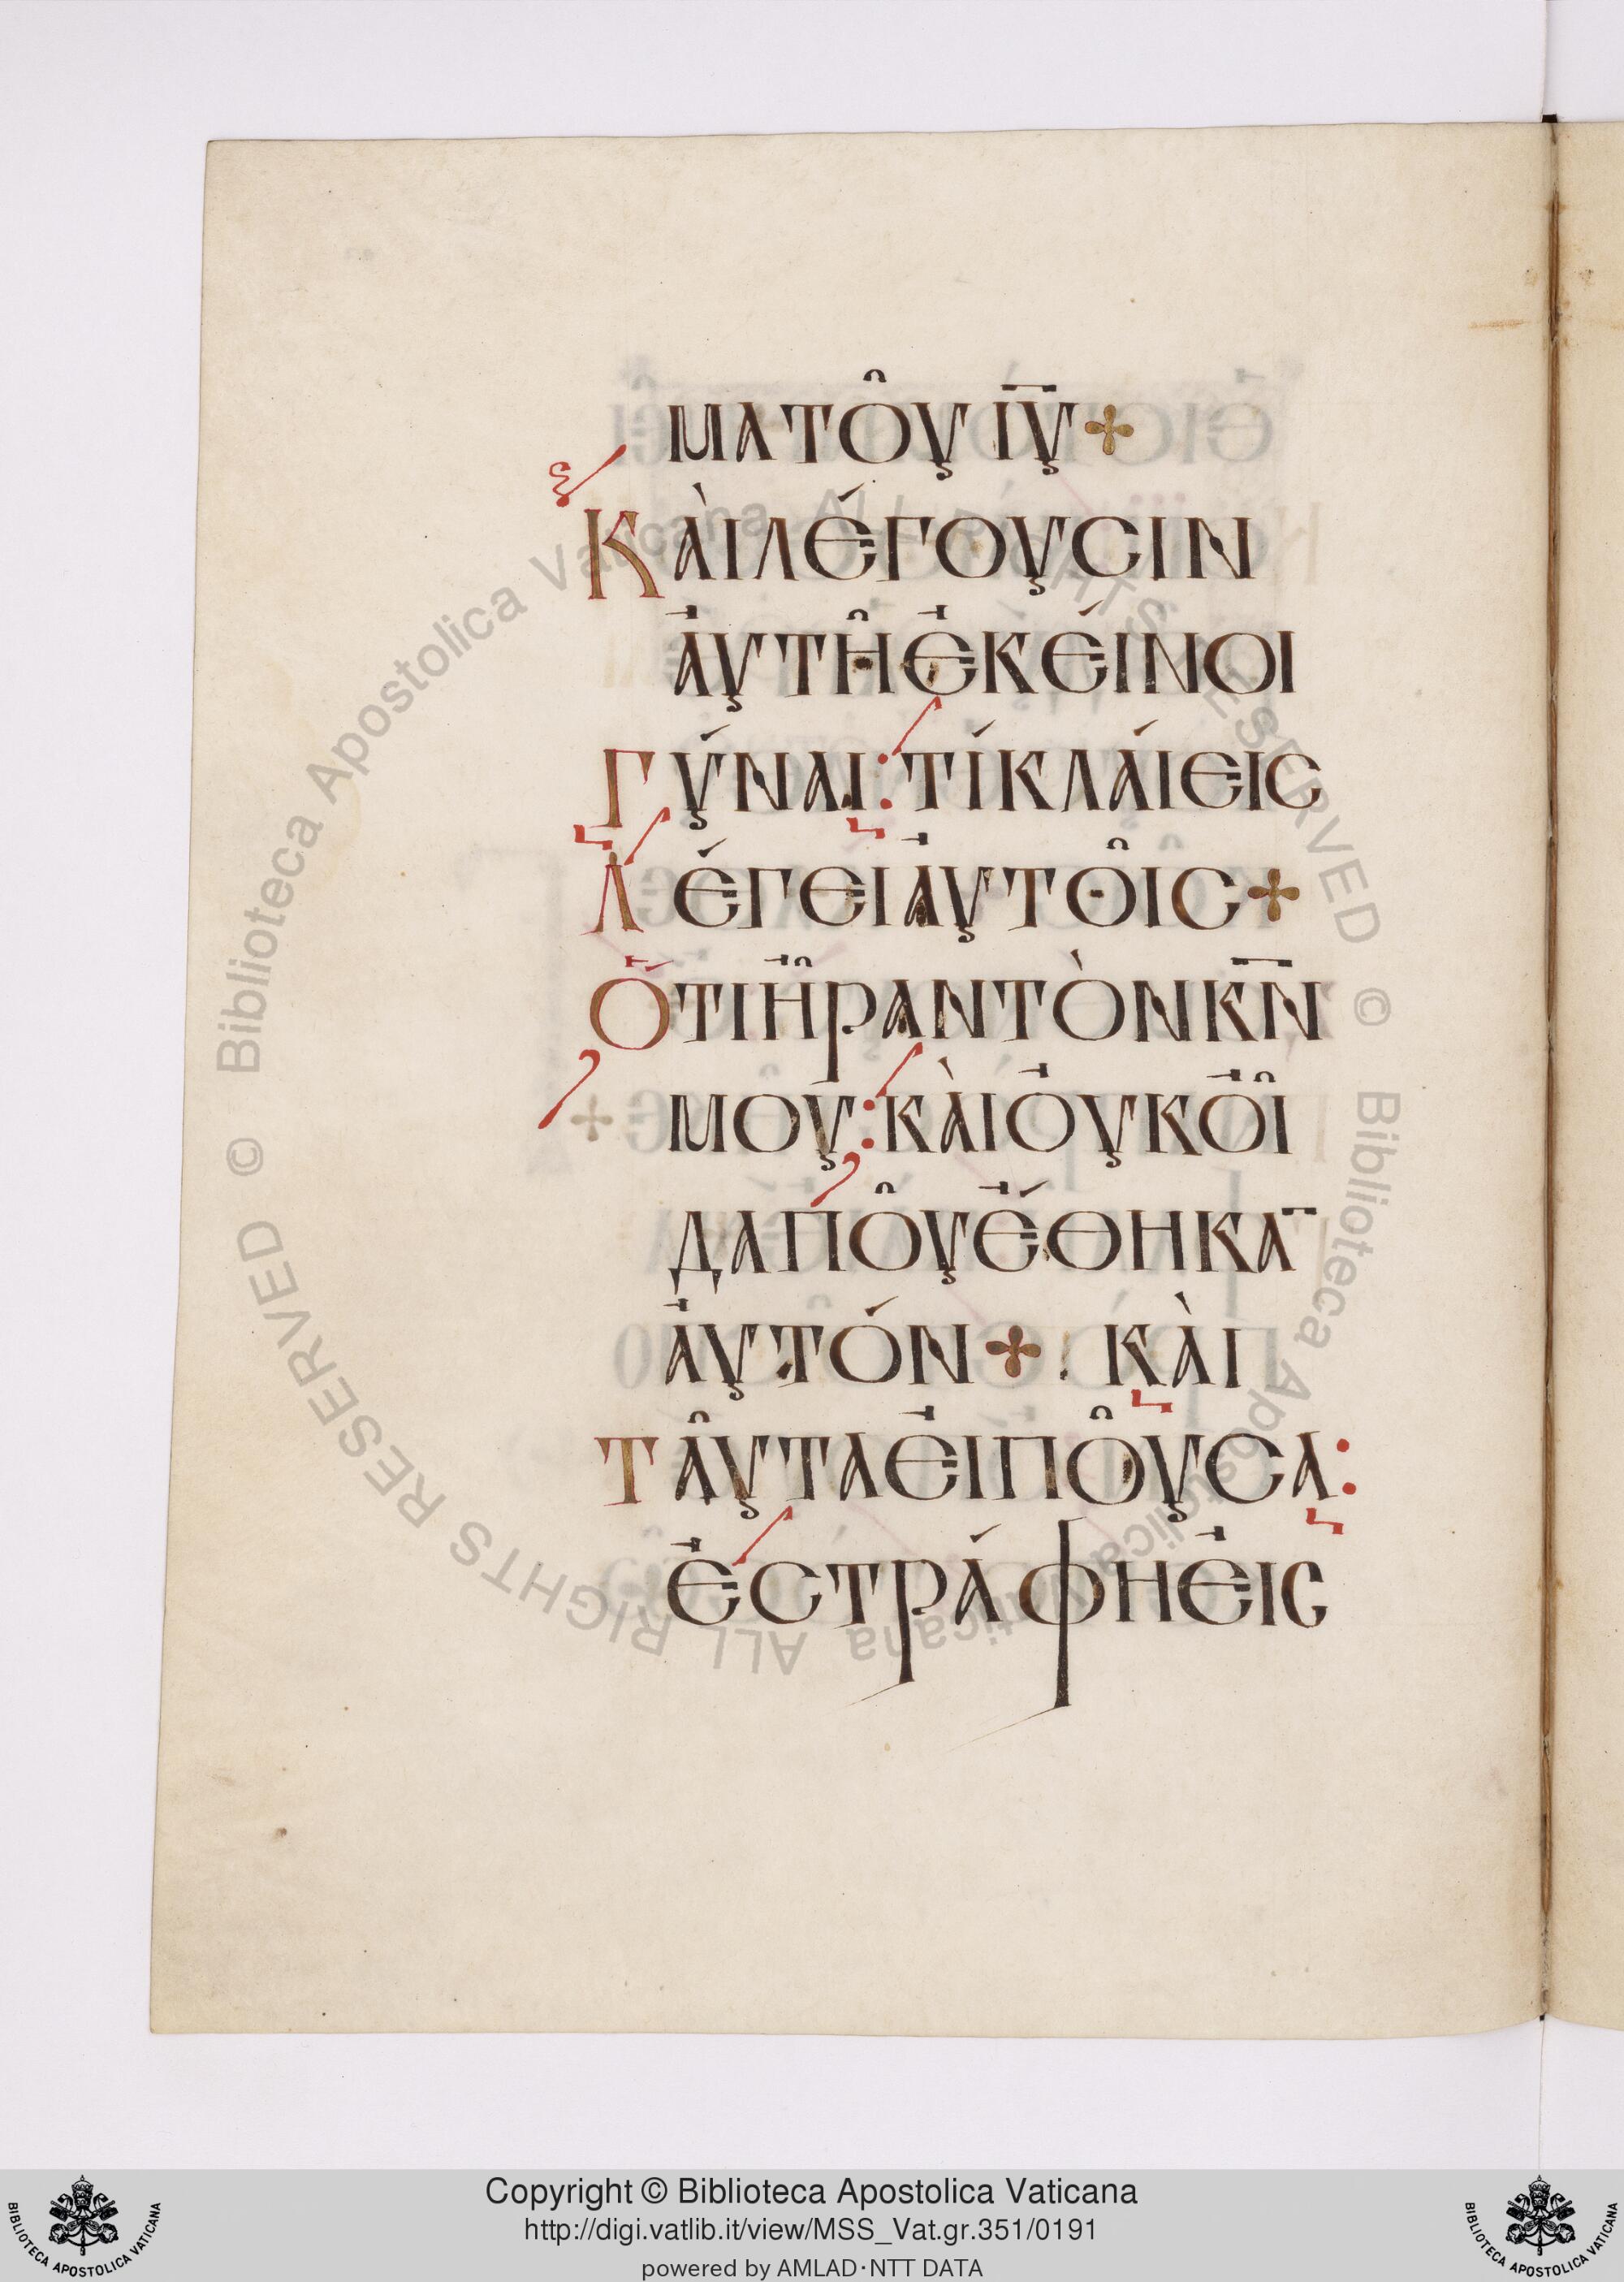 ΜΑΤΟῦ ΙΥ̅ +
ΚΑὶ ΛέΓΟΥСΙΝ
ἀΥΤῆ ἐΚΕίΝΟΙ
ΓύΝΑΙ: Τί ΚΛΑίΕΙС
ΛέΓΕΙ ἀΥΤΟῖС +
ὅΤΙ ἦΡΑΝ ΤὸΝ ΚΝ̅
ΜΟΥ: ΚΑὶ ΟὐΚ ΟἶΙ
ΔΑ ΠΟῦ ἔΘΗΚΑ̅
ἀΥΤόΝ + ΚΑὶ
ΤΑῦΤΑ ΕἰΠΟῦСΑ:
ἐСΤΡάΦΗ ΕἰС
© Biblioteca Apostolica Vaticana ALL RIGHTS RESERVED © Biblioteca Apostolica Vaticana ALL RIGHTS RESERVED
Copyright © Biblioteca Apostolica Vaticana
http://digi.vatlib.it/view/MSS_Vat.gr.351/0191
powered by AMLAD·NTT DATA
BIBLIOTECA APOSTOLICA VATICANA
BIBLIOTECA APOSTOLICA VATICANA